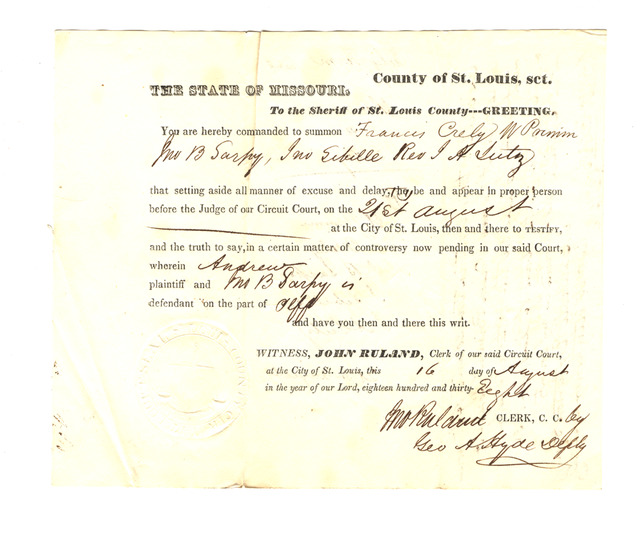 County of St. Louis, sct.
THE STATE OF MISSOURI.
To the Sheriff of St. Louis County---GREETING.
You are hereby commanded to summon Francis Crely W
Jno B Sarpy, Jno Sibille Rev J A Lutz
that setting aside all manner of excuse and delay, They be and appear in proper person
before the Judge of our Circuit Court, on the 21st august
at the City of St. Louis, then and there to TESTIFY,
and the truth to say, in a certain matter of controversy now pending in our said Court,
wherein Andrew
plaintiff and Jno B Sarpy is
defendant on the part of Plff
and have you then and there this writ.
WITNESS, JOHN RULAND, Clerk of our said Circuit Court,
at the City of St. Louis, this 16 day of August
in the year of our Lord, eighteen hundred and thirty-Eight
Jno Ruland CLERK, C. C. by
Geo A. Hyde Depty